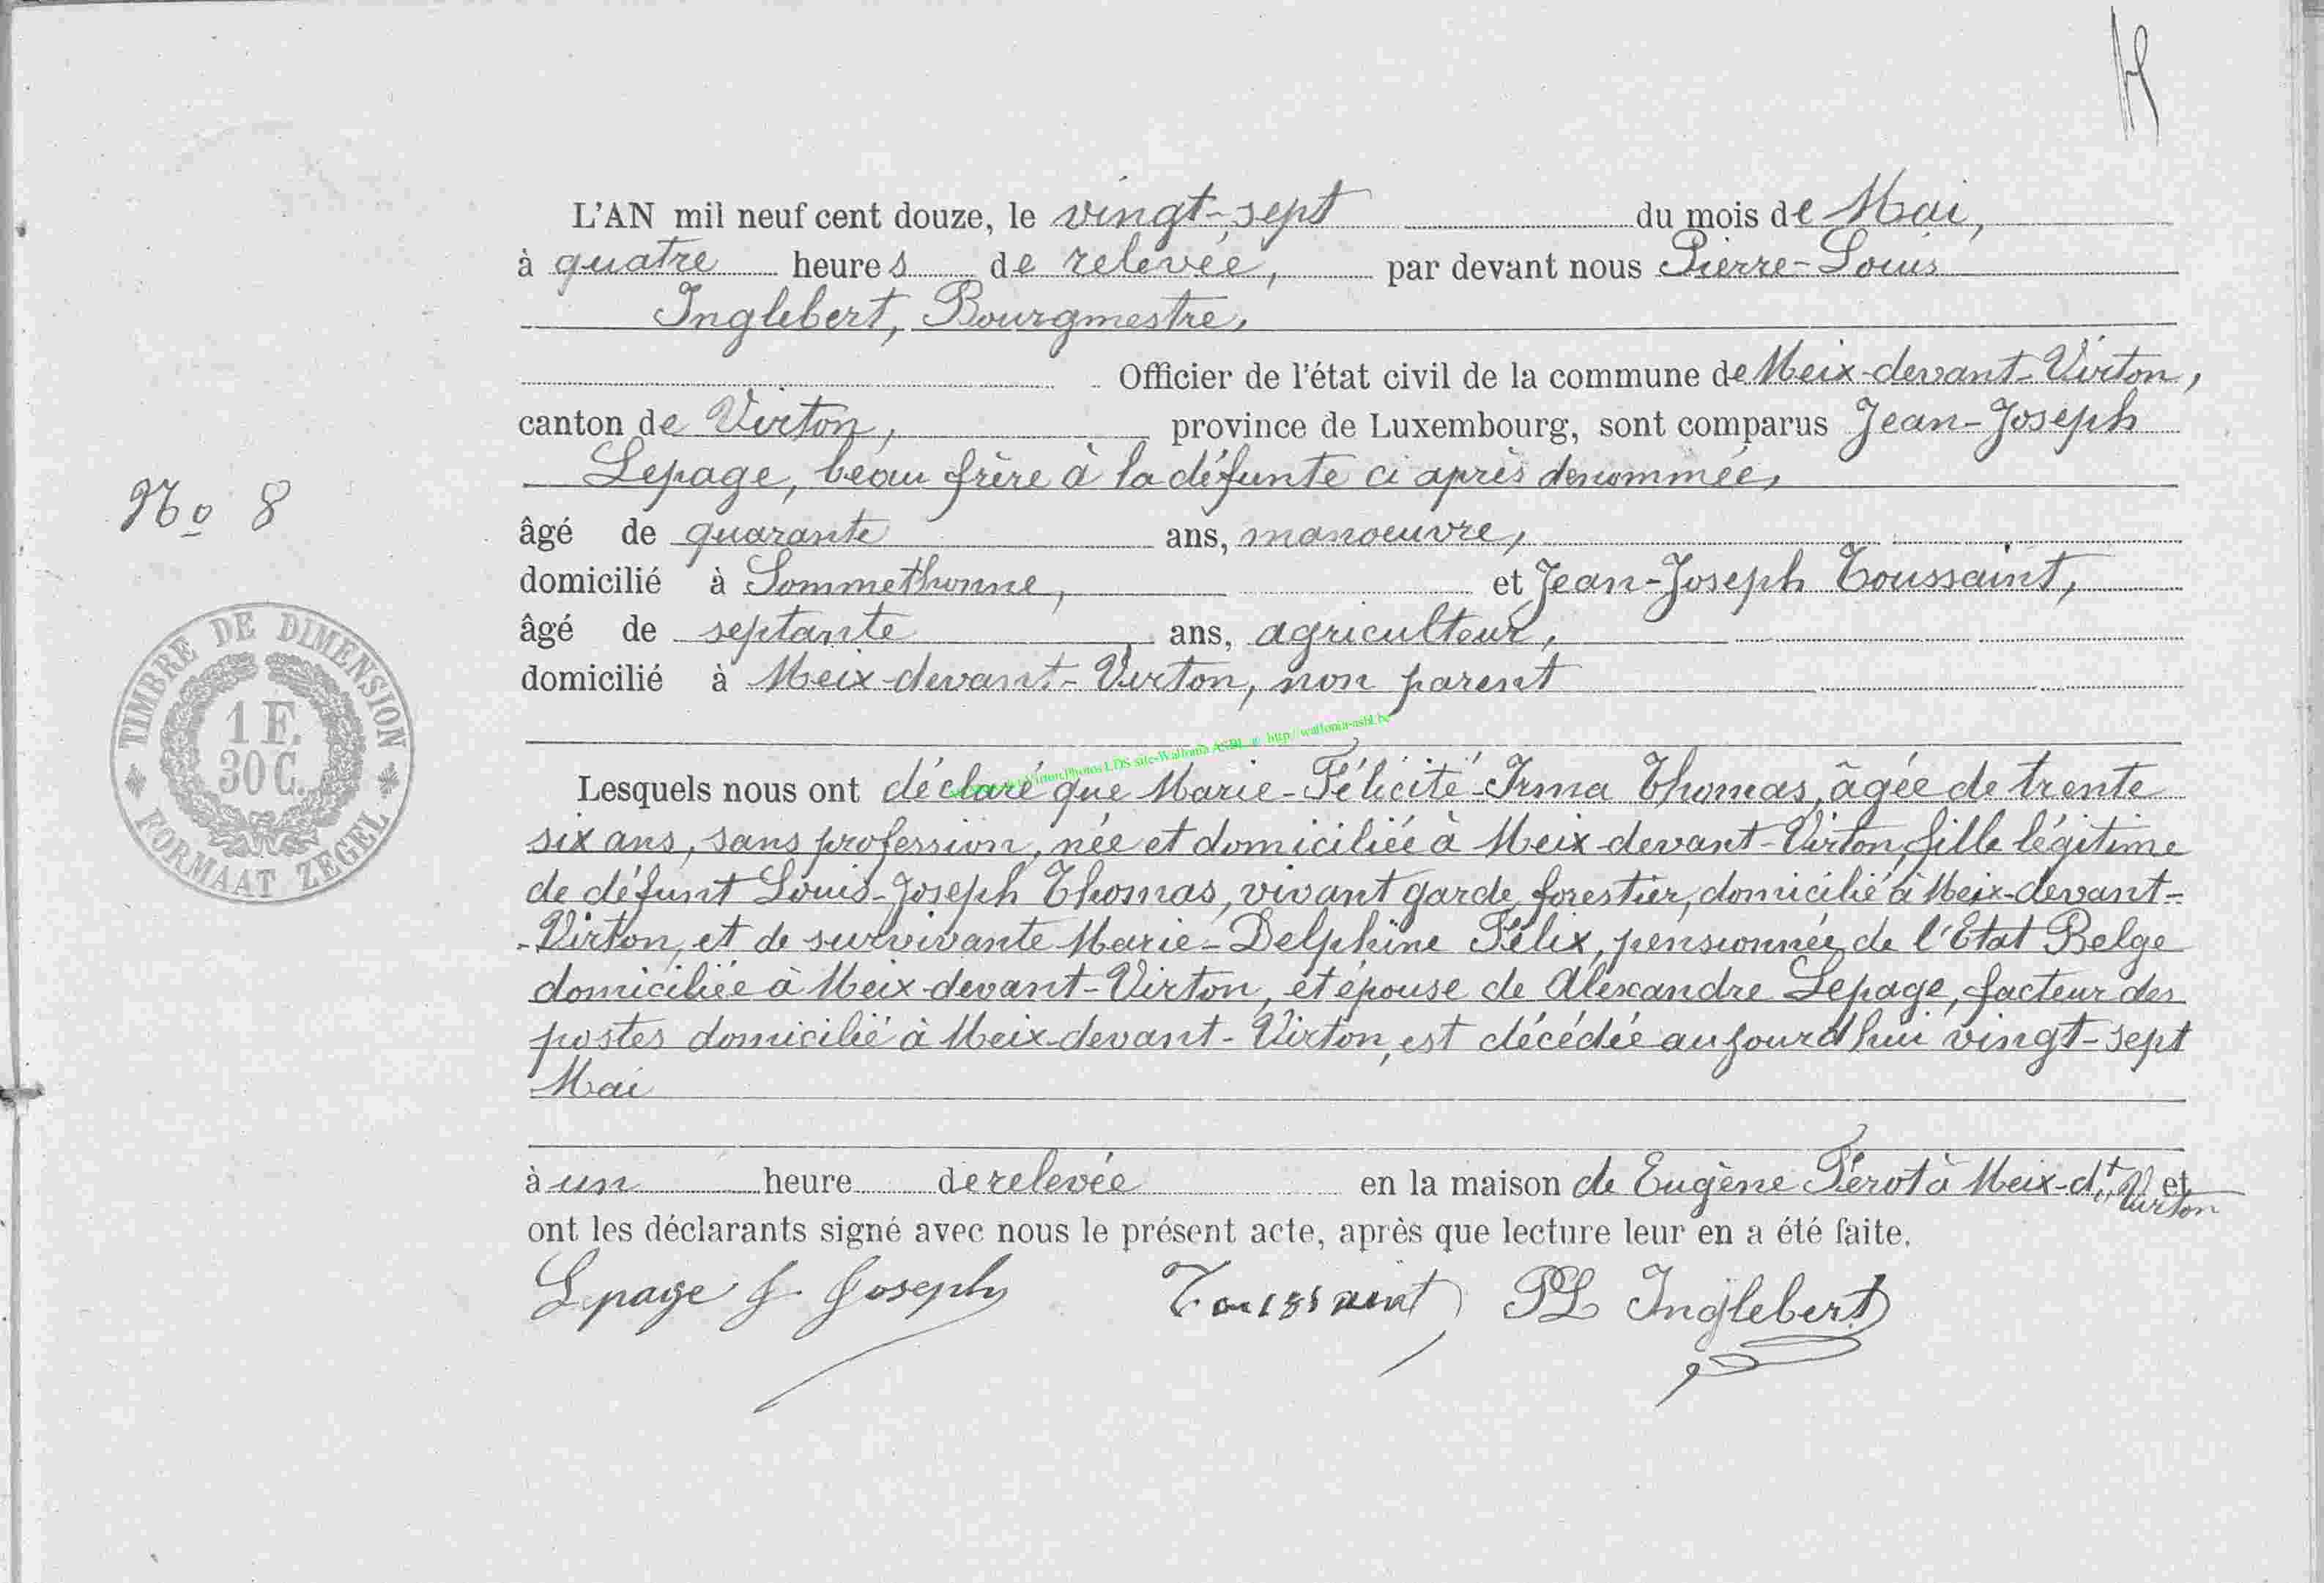 L'AN mil neuf cent douze, le vingt-sept du mois de Mai,
à quatre heures de relevée, par devant nous Pierre-Louis
Inglebert, Bourgmestre,
Officier de l'état civil de la commune de Meix-devant-Virton,
canton de Virton, province de Luxembourg, sont comparus Jean-Joseph
Lepage, beau frère à la défunte ci après dénommée,
No 8
âgé de quarante ans, manoeuvre,
domicilié à Sommethonne, et Jean-Joseph Toussaint,
âgé de septante ans, agriculteur,
domicilié à Meix-devant-Virton, non parent
TIMBRE DE DIMENSION
1 F.
30 C.
FORMAAT ZEGEL
Photos LDS site-Wallonia ASBL © http://wallonia-asbl.be
Lesquels nous ont déclaré que Marie-Félicité-Irma Thomas, âgée de trente
six ans, sans profession, née et domiciliée à Meix-devant-Virton, fille légitime
de défunt Louis-Joseph Thomas, vivant garde forestier, domicilié à Meix-devant-
-Virton, et de survivante Marie-Delphine Félix, pensionnée de l'Etat Belge
domiciliée à Meix-devant-Virton, et épouse de Alexandre Lepage, facteur des
postes domicilié à Meix-devant-Virton, est décédée aujourd'hui vingt-sept
Mai
à un heure de relevée en la maison de Eugène Pérot à Meix-dt-Virton et
ont les déclarants signé avec nous le présent acte, après que lecture leur en a été faite.
Lepage J. Joseph Toussaint PL Inglebert